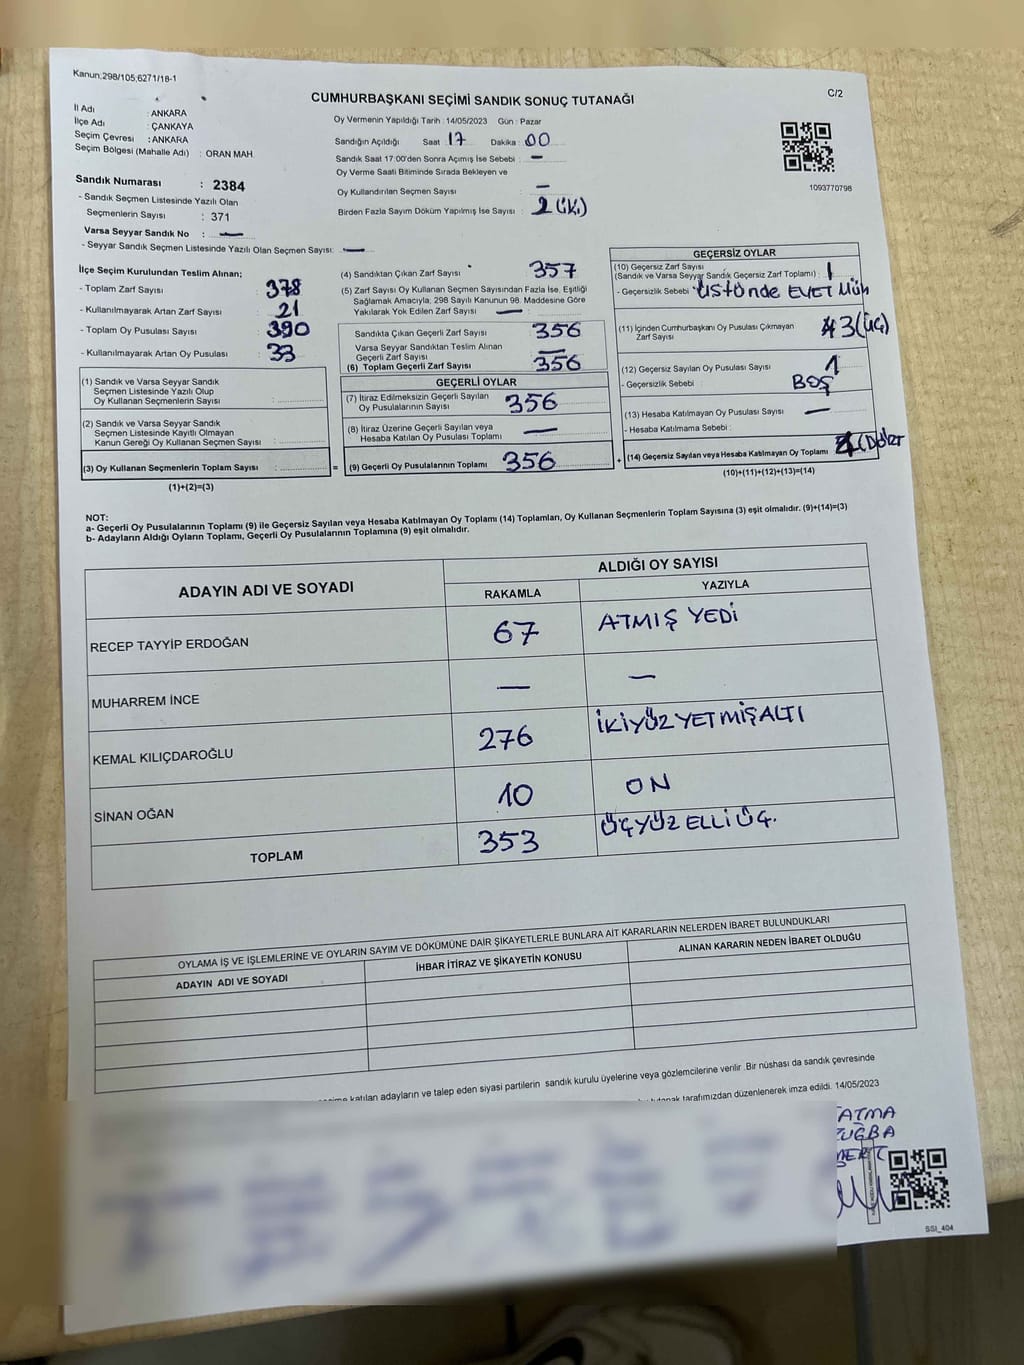 Kanun;298/105;6271/18-1
CUMHURBAŞKANI SEÇİMİ SANDIK SONUÇ TUTANAĞI
C/2
İl Adı : ANKARA
İlçe Adı : ÇANKAYA
Seçim Çevresi : ANKARA
Seçim Bölgesi (Mahalle Adı) : ORAN MAH.
Sandık Numarası : 2384
- Sandık Seçmen Listesinde Yazılı Olan
Seçmenlerin Sayısı : 371
Varsa Seyyar Sandık No : —
- Seyyar Sandık Seçmen Listesinde Yazılı Olan Seçmen Sayısı: —
Oy Vermenin Yapıldığı Tarih : 14/05/2023 Gün : Pazar
Sandığın Açıldığı Saat 17 Dakika : 00
Sandık Saat 17:00'den Sonra Açımış İse Sebebi : —
Oy Verme Saati Bitiminde Sırada Bekleyen ve
Oy Kullandırılan Seçmen Sayısı : —
Birden Fazla Sayım Döküm Yapılmış İse Sayısı : 2 (iki)
1093770798
İlçe Seçim Kurulundan Teslim Alınan;
- Toplam Zarf Sayısı : 378
- Kullanılmayarak Artan Zarf Sayısı : 21
- Toplam Oy Pusulası Sayısı : 390
- Kullanılmayarak Artan Oy Pusulası : 33
(1) Sandık ve Varsa Seyyar Sandık
Seçmen Listesinde Yazılı Olup
Oy Kullanan Seçmenlerin Sayısı :
(2) Sandık ve Varsa Seyyar Sandık
Seçmen Listesinde Kayıtlı Olmayan
Kanun Gereği Oy Kullanan Seçmen Sayısı :
(3) Oy Kullanan Seçmenlerin Toplam Sayısı : =
(1)+(2)=(3)
(4) Sandıktan Çıkan Zarf Sayısı : 357
(5) Zarf Sayısı Oy Kullanan Seçmen Sayısından Fazla İse, Eşitliği
Sağlamak Amacıyla, 298 Sayılı Kanunun 98. Maddesine Göre
Yakılarak Yok Edilen Zarf Sayısı : —
Sandıkta Çıkan Geçerli Zarf Sayısı : 356
Varsa Seyyar Sandıktan Teslim Alınan
Geçerli Zarf Sayısı : —
(6) Toplam Geçerli Zarf Sayısı : 356
GEÇERLİ OYLAR
(7) İtiraz Edilmeksizin Geçerli Sayılan
Oy Pusulalarının Sayısı : 356
(8) İtiraz Üzerine Geçerli Sayılan veya
Hesaba Katılan Oy Pusulası Toplamı : —
(9) Geçerli Oy Pusulalarının Toplamı : 356 +
GEÇERSİZ OYLAR
(10) Geçersiz Zarf Sayısı
(Sandık ve Varsa Seyyar Sandık Geçersiz Zarf Toplamı) : 1
- Geçersizlik Sebebi : ÜSTÜNDE EVET MÜH
(11) İçinden Cumhurbaşkanı Oy Pusulası Çıkmayan
Zarf Sayısı : 3 (üç)
(12) Geçersiz Sayılan Oy Pusulası Sayısı : 1
- Geçersizlik Sebebi : BOŞ
(13) Hesaba Katılmayan Oy Pusulası Sayısı : —
- Hesaba Katılmama Sebebi :
(14) Geçersiz Sayılan veya Hesaba Katılmayan Oy Toplamı :
(10)+(11)+(12)+(13)=(14)
NOT:
a- Geçerli Oy Pusulalarının Toplamı (9) ile Geçersiz Sayılan veya Hesaba Katılmayan Oy Toplamı (14) Toplamları, Oy Kullanan Seçmenlerin Toplam Sayısına (3) eşit olmalıdır. (9)+(14)=(3)
b- Adayların Aldığı Oyların Toplamı, Geçerli Oy Pusulalarının Toplamına (9) eşit olmalıdır.
ADAYIN ADI VE SOYADI
ALDIĞI OY SAYISI
RAKAMLA YAZIYLA
RECEP TAYYİP ERDOĞAN 67 ATMIŞ YEDİ
MUHARREM İNCE — —
KEMAL KILIÇDAROĞLU 276 İKİYÜZYETMİŞALTI
SİNAN OĞAN 10 ON
TOPLAM 353 ÜÇYÜZELLİÜÇ.
OYLAMA İŞ VE İŞLEMLERİNE VE OYLARIN SAYIM VE DÖKÜMÜNE DAİR ŞİKAYETLERLE BUNLARA AİT KARARLARIN NELERDEN İBARET BULUNDUKLARI
ADAYIN ADI VE SOYADI İHBAR İTİRAZ VE ŞİKAYETİN KONUSU ALINAN KARARIN NEDEN İBARET OLDUĞU
katılan adayların ve talep eden siyasi partilerin sandık kurulu üyelerine veya gözlemcilerine verilir .Bir nüshası da sandık çevresinde
tutanak tarafımızdan düzenlenerek imza edildi. 14/05/2023
FATMA
TUĞBA
MERT
SSI_404